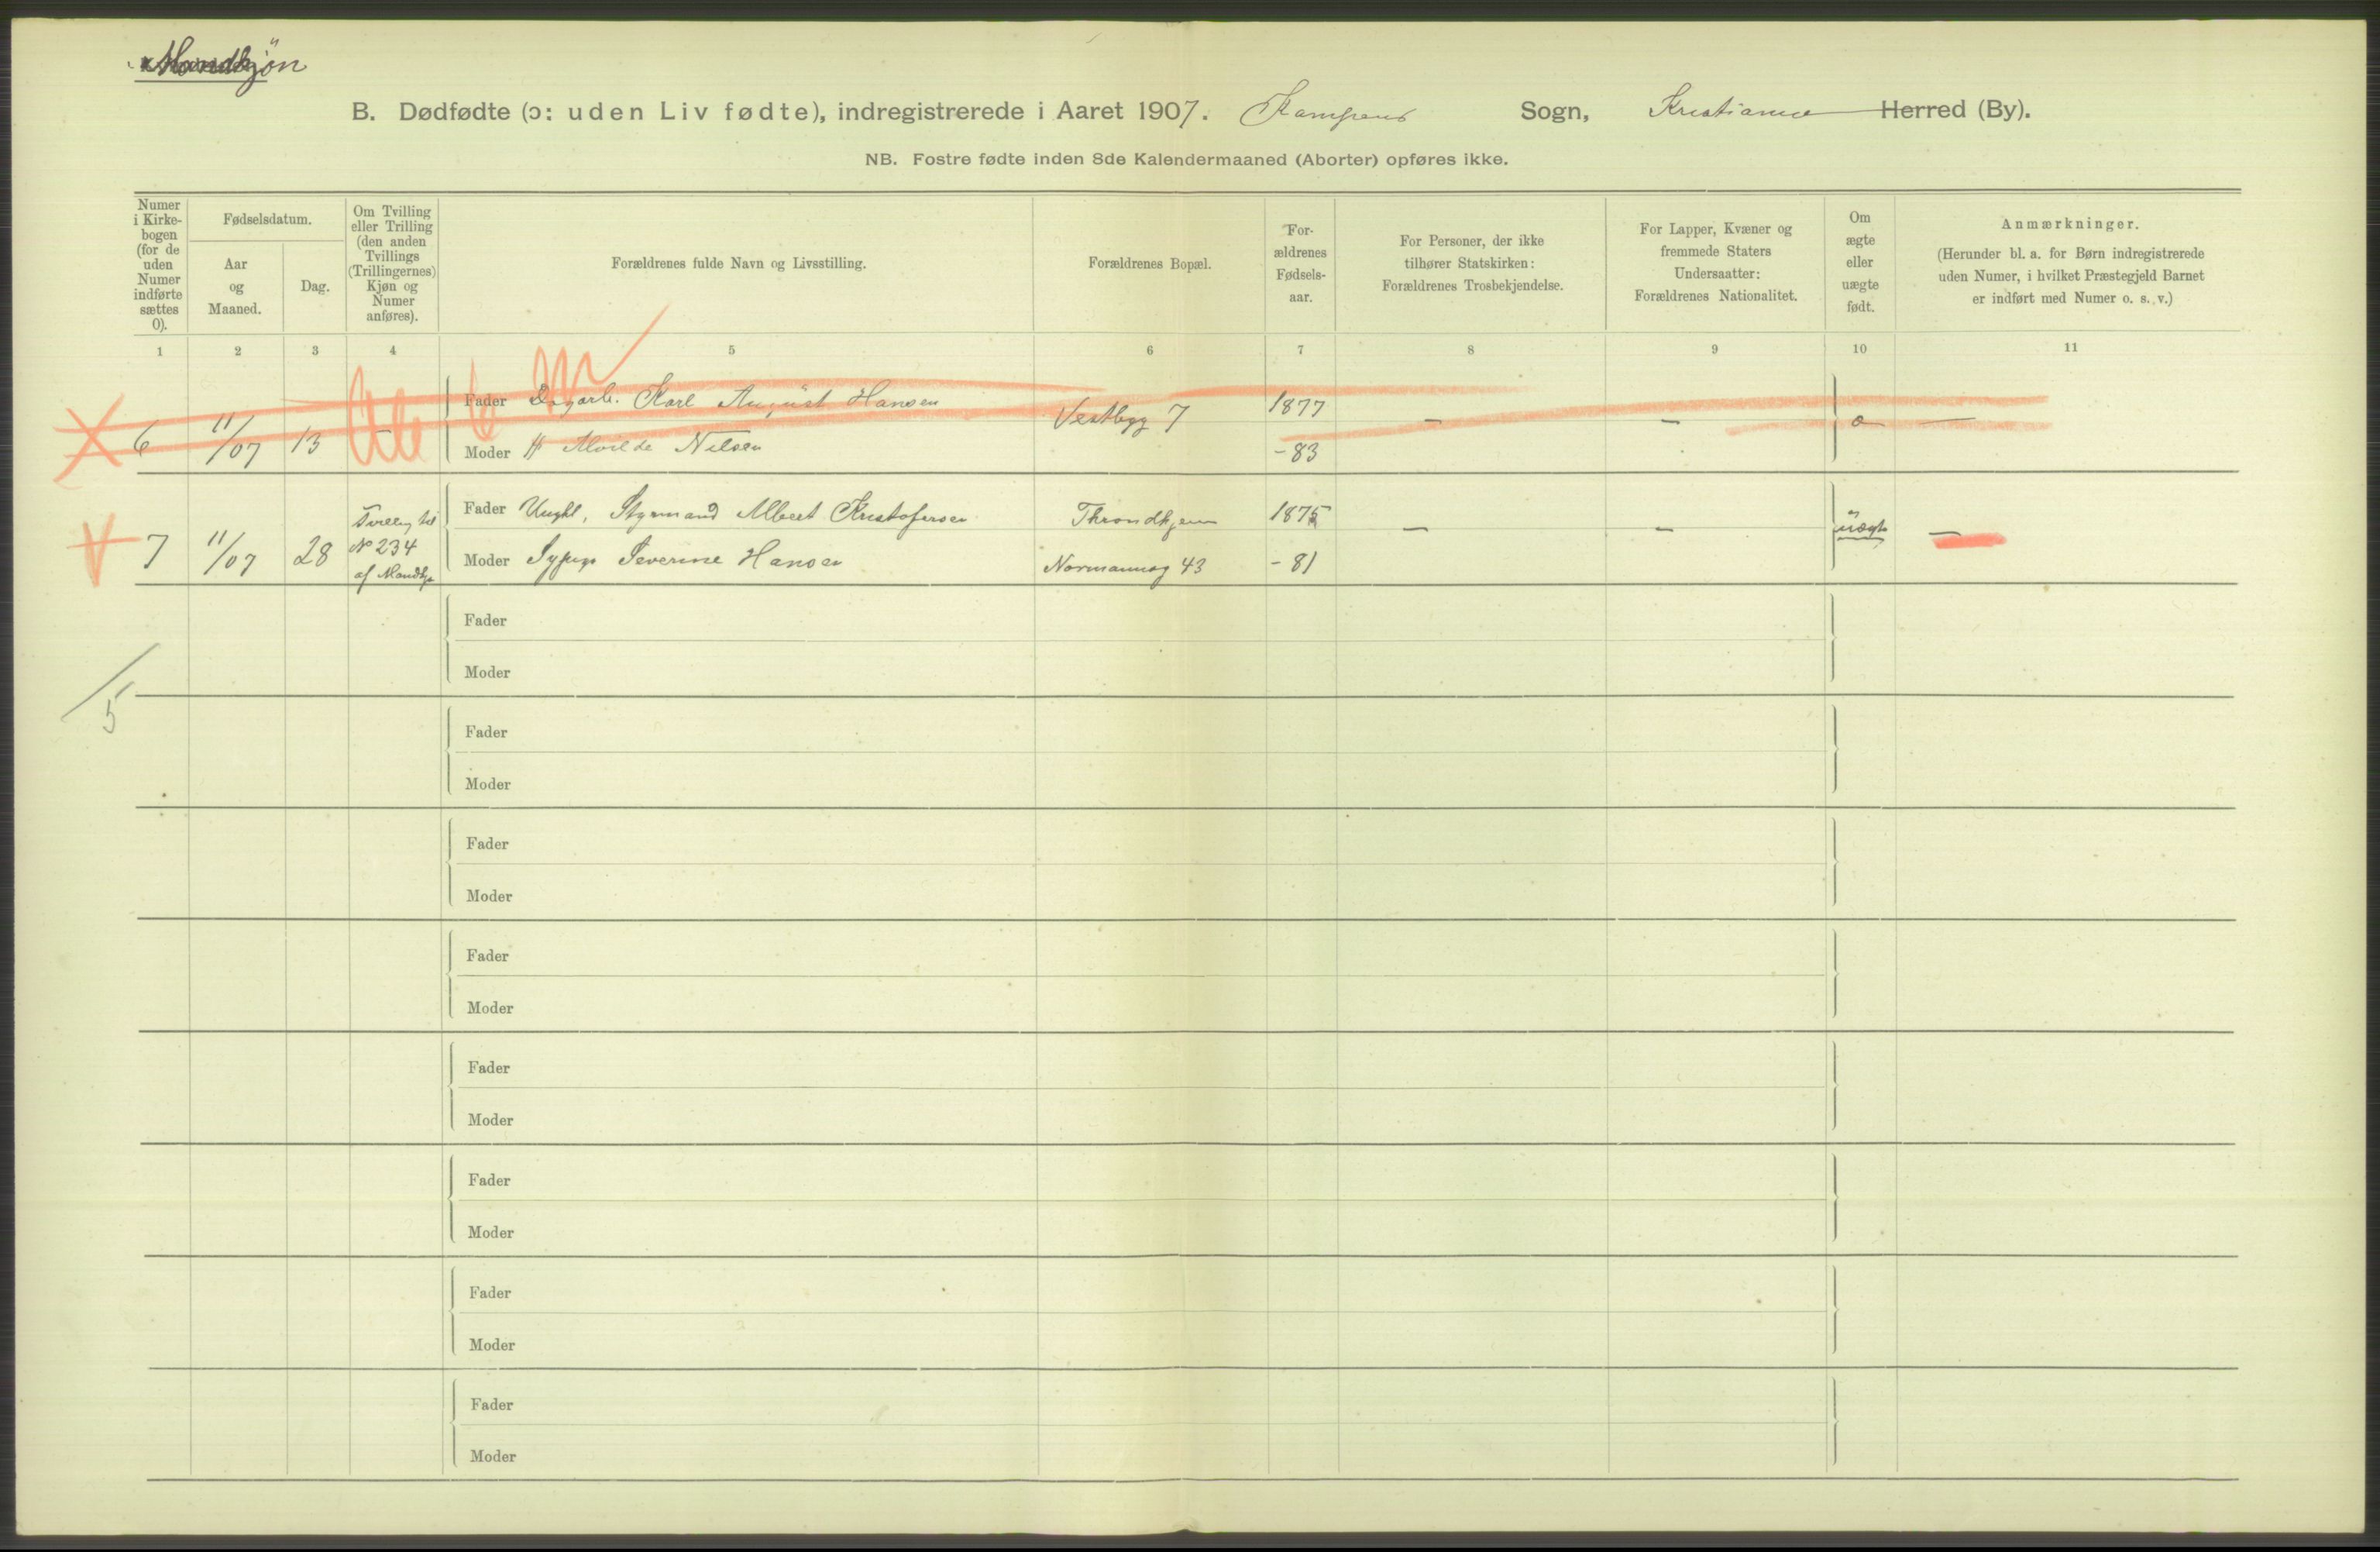 Mandkjøn
B. Dødfødte (ɔ: uden Liv fødte), indregistrerede i Aaret 1907. Kampens Sogn, Kristiania Herred (By).
NB. Fostre fødte inden 8de Kalendermaaned (Aborter) opføres ikke.
Numer i Kirke-bogen (for de uden Numer indførte sættes 0).
Fødselsdatum.
Aar og Maaned.
Dag.
Om Tvilling eller Trilling (den anden Tvillings (Trillingernes) Kjøn og Numer anføres).
Forældrenes fulde Navn og Livsstilling.
Forældrenes Bopæl.
For-ældrenes Fødsels-aar.
For Personer, der ikke tilhører Statskirken: Forældrenes Trosbekjendelse.
For Lapper, Kvæner og fremmede Staters Undersaatter: Forældrenes Nationalitet.
Om ægte eller uægte født.
Anmærkninger.
(Herunder bl. a. for Børn indregistrerede uden Numer, i hvilket Præstegjeld Barnet er indført med Numer o. s. v.)
1 2 3 4 5 6 7 8 9 10 11
6 11/07 13 - Fader Dagarb. Karl August Hansen Vestbyg 7 1877 - - -
Moder H Alvilde Nilsen - 83
7 11/07 28 Tvilling til No 234 af Mandkjøn Fader Ungkl, Styrmand Albert Kristofersen Throndhjem 1875 - - uægte -
Moder Sypige Severine Hansen Normannsg 43 - 81
Fader
Moder
5
Fader
Moder
Fader
Moder
Fader
Moder
Fader
Moder
Fader
Moder
Fader
Moder
Fader
Moder